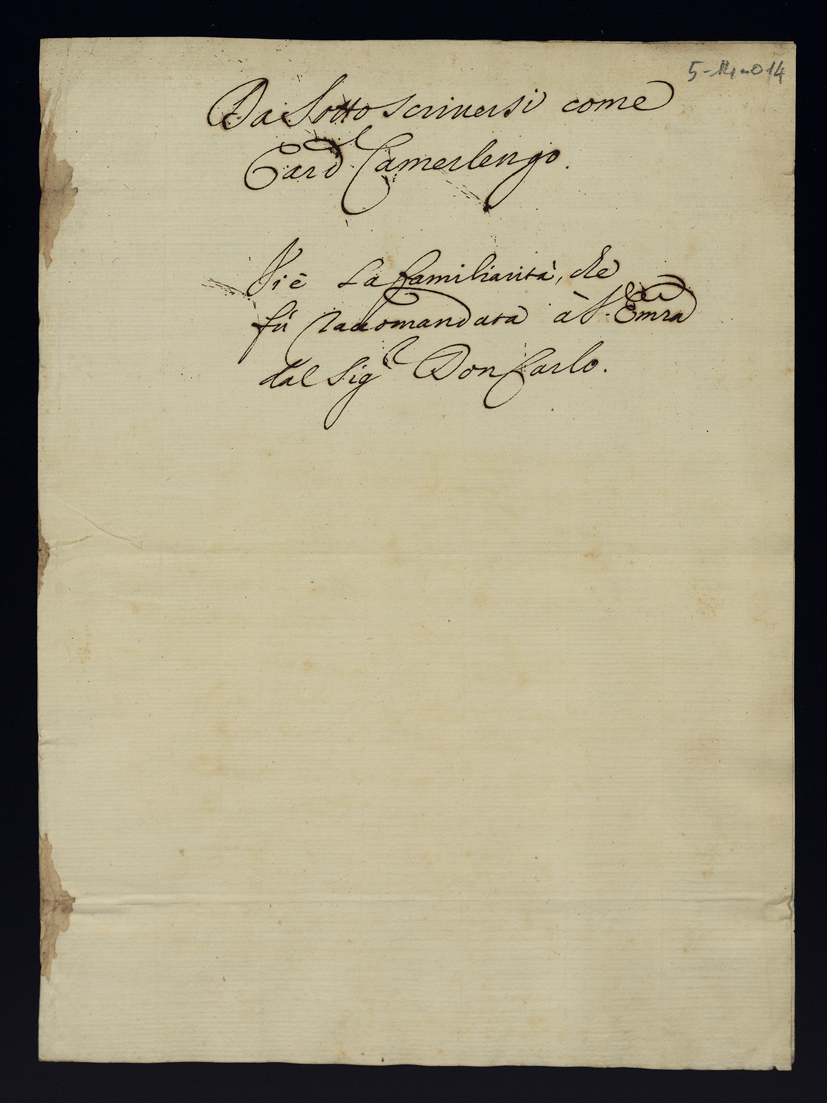 5-14-014
Da Sottoscriversi come
Card Camerlengo.
Vi è La familiarità, che
fù raccomandata à S. Emza
dal Sigr Don Carlo.